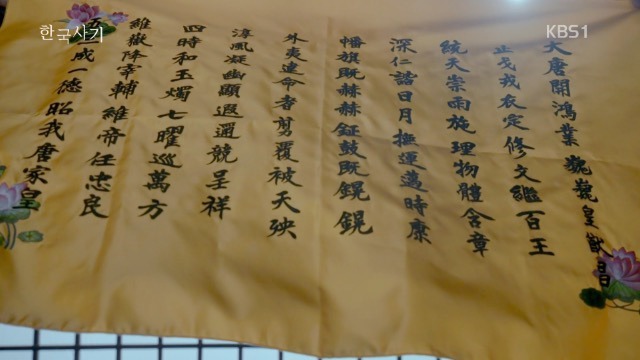 한국사기
KBS1
大唐開鴻業 巍巍皇猷昌
止戈戎衣定 修文繼百王
統天崇雨施 理物體含章
深仁諧日月 撫運邁時康
幡旗既赫赫 鉦鼓既鍠鍠
外夷違命者 翦覆被天殃
淳風凝幽顯 遐邇競呈祥
四時和玉燭 七曜巡萬方
維嶽降宰輔 維帝任忠良
五三成一德 昭我唐家皇